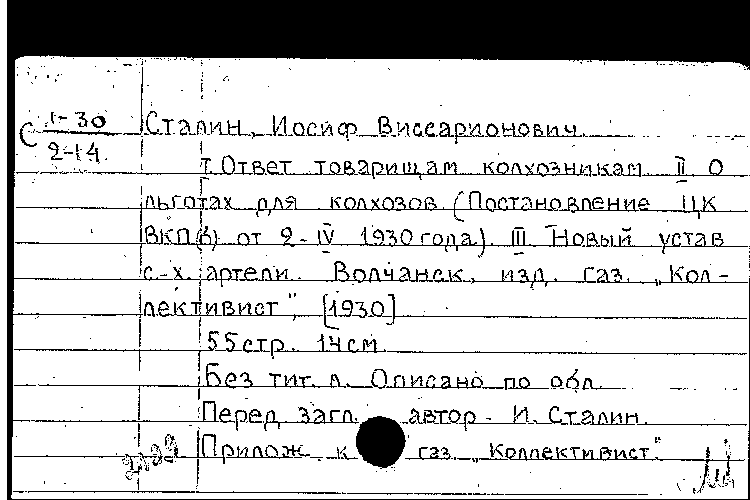 С 1-30
2-14
Сталин, Иосиф Виссарионович.
I. Ответ товарищам колхозникам. II О
льготах для колхозов (Постановление ЦК
ВКП(б) от 2-IV 1930 года). III. Новый устав
с.-х. артели. Волчанск, изд. газ. „Кол-
лективист", [1930]
55 стр. 14 см.
Без тит. л. Описано по обл.
Перед загл. автор - И. Сталин.
Прилож. к газ. „Коллективист".